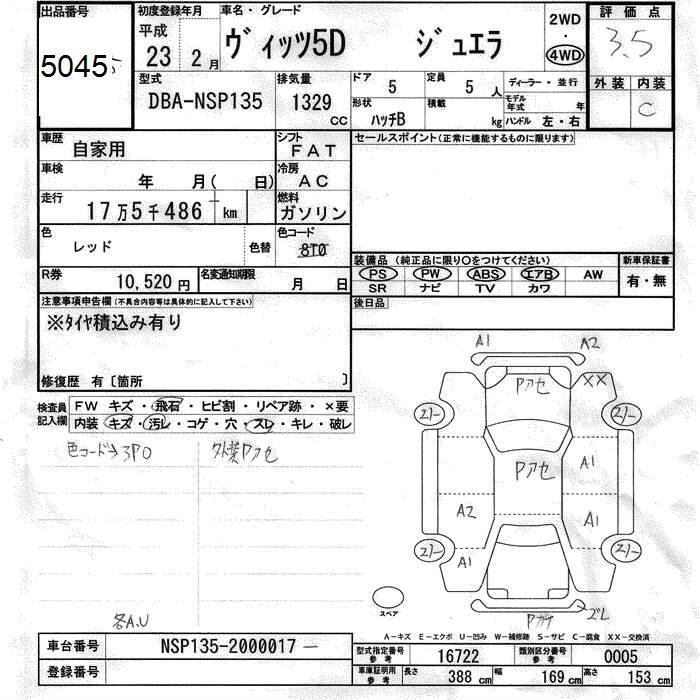 出品番号
5045
初度登録年月
平成
23年 2月
車名・グレード
ヴィッツ5D ジュエラ
2WD
・
4WD
評価点
3.5
外装 内装
C
型式
DBA-NSP135
排気量
1329
CC
ドア
5
定員
5 人
ディーラー・並行
形状
ハッチB
積載
kg
モデル年式 年
ハンドル 左・右
車歴
自家用
シフト
FAT
セールスポイント(正常に機能するものに限ります)
車検
年 月( 日)
冷房
AC
走行
17万5千486 km
燃料
ガソリン
色
レッド
色替
色コード
8T0
R券
10,520円
名変通知期限
月 日
装備品 (純正品に限り〇をつけてください)
PS PW ABS エアB AW
SR ナビ TV カワ
新車保証書
有・無
後日品
注意事項申告欄(不具合内容等は具体的に記入して下さい)
※タイヤ積込み有り
修復歴 有〔箇所 〕
検査員記入欄
FW キズ・飛石・ヒビ割・リペア跡・×要
内装 キズ・汚レ・コゲ・穴・スレ・キレ・破レ
色コード→3P0
外装Pアセ
各A.U
A1
A2
Pアセ
XX
Pアセ
A1
A2
A1
A1
スペア
A-キズ E-エクボ U-凹み W-補修跡 S-サビ C-腐食 XX-交換済
車台番号
NSP135-2000017
登録番号
型式指定番号
参考
16722
類別区分番号
参考
0005
車庫証明用
参考
長さ 388 cm
幅 169 cm
高さ 153 cm